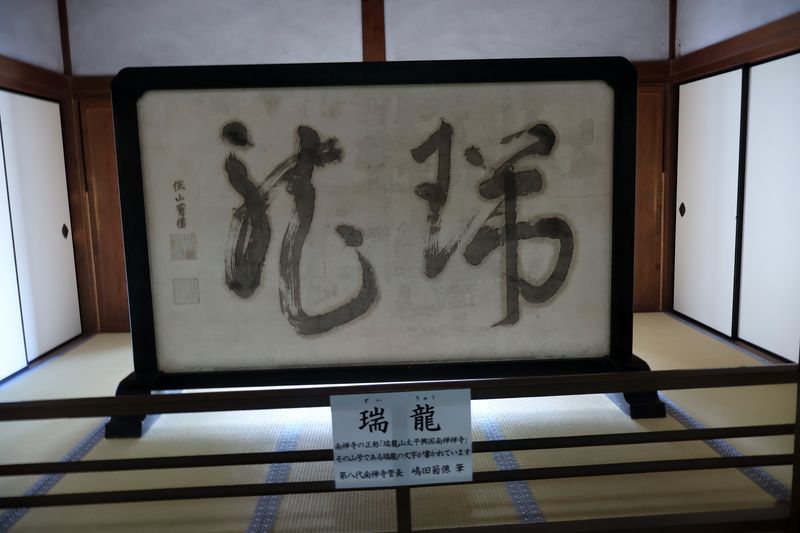 瑞龍
住山菊僊
ずいりゅう
瑞龍
南禅寺の正称「瑞龍山太平興国南禅禅寺」
その山号である瑞龍の文字が書かれています
第八代南禅寺管長 嶋田菊僊 筆